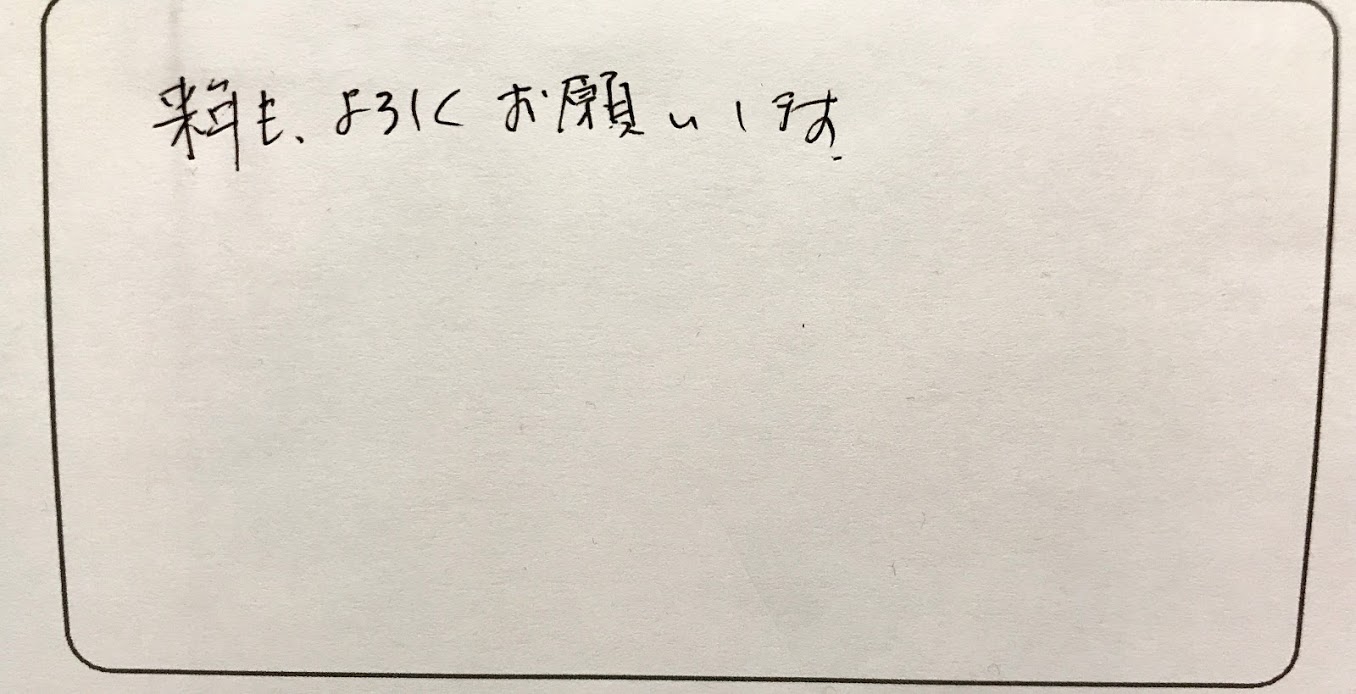 来年も、よろしくお願いします